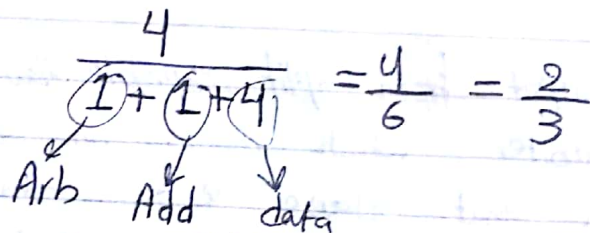 4
1 + 1 + 4 = 4/6 = 2/3
Arb Add data